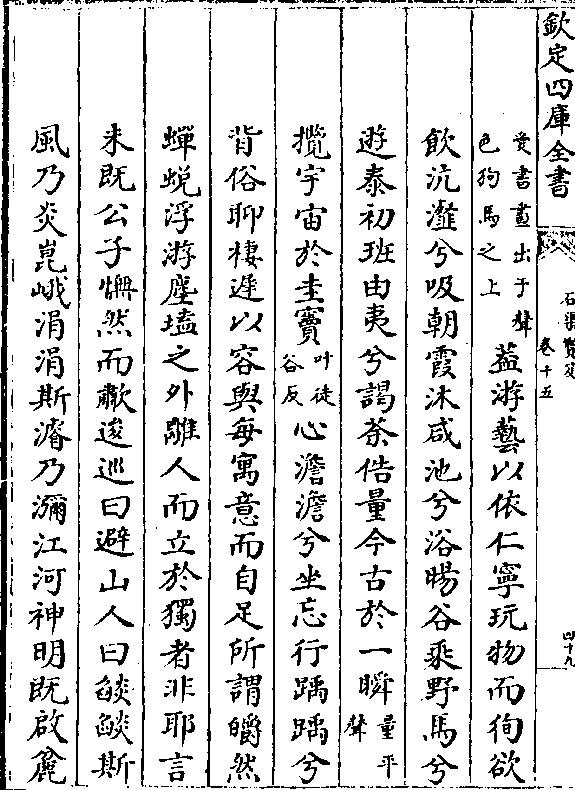 欽定四庫全書
石渠寶笈
卷十五
四十九
愛書畫出于聲
色狗馬之上
葢游藝以依仁寧玩物而徇欲
飲沆瀣兮吸朝霞沐咸池兮浴暘谷乘野馬兮
遊泰初班由夷兮謁荼俈量今古於一瞬
量平
聲
攬宇宙於圭竇
叶徒
谷反
心澹澹兮坐忘行踽踽兮
背俗聊棲遲以容與每寓意而自足所謂皭然
蟬蛻浮游塵壒之外離人而立於獨者非耶言
未既公子憮然而肅逡巡曰避山人曰燄燄斯
風乃炎崑峨涓涓斯濬乃瀰江河神明既啟麄